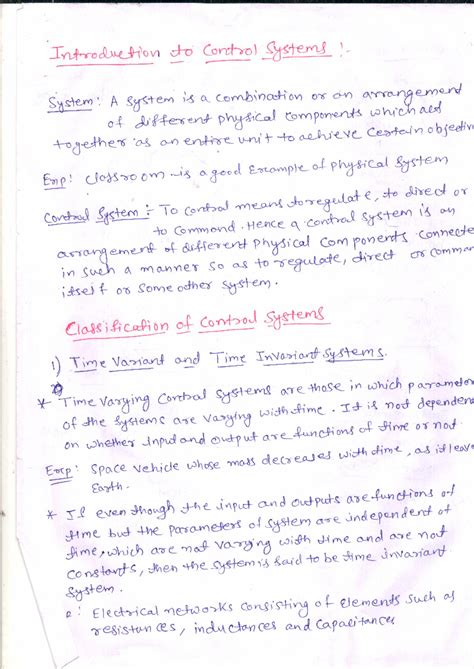 Introduction to Control Systems !-
System: A System is a combination or an arrangement
of different physical components which act
together as an entire unit to achieve certain objectiv
Exp: Classroom is a good Example of Physical System
Control System :- To control means to regulate, to direct or
to Command. Hence a control system is an
arrangement of different Physical Components connecte
in such a manner so as to regulate, direct or comman
itself or some other system.
Classification of Control Systems
1) Time Variant and Time Invariant Systems.
* Time Varying Control Systems are those in which parameter
of the systems are varying with time. It is not dependen
on whether input and output are functions of time or not.
Exp: Space Vehicle whose mass decreases with time, as it leave
Earth.
* If even though the input and outputs are functions of
time but the parameters of system are independent of
time, which are not varying with time and are not
constants, then the system is said to be time invariant
System.
e: Electrical networks consisting of elements such as
resistances, inductances and Capacitances